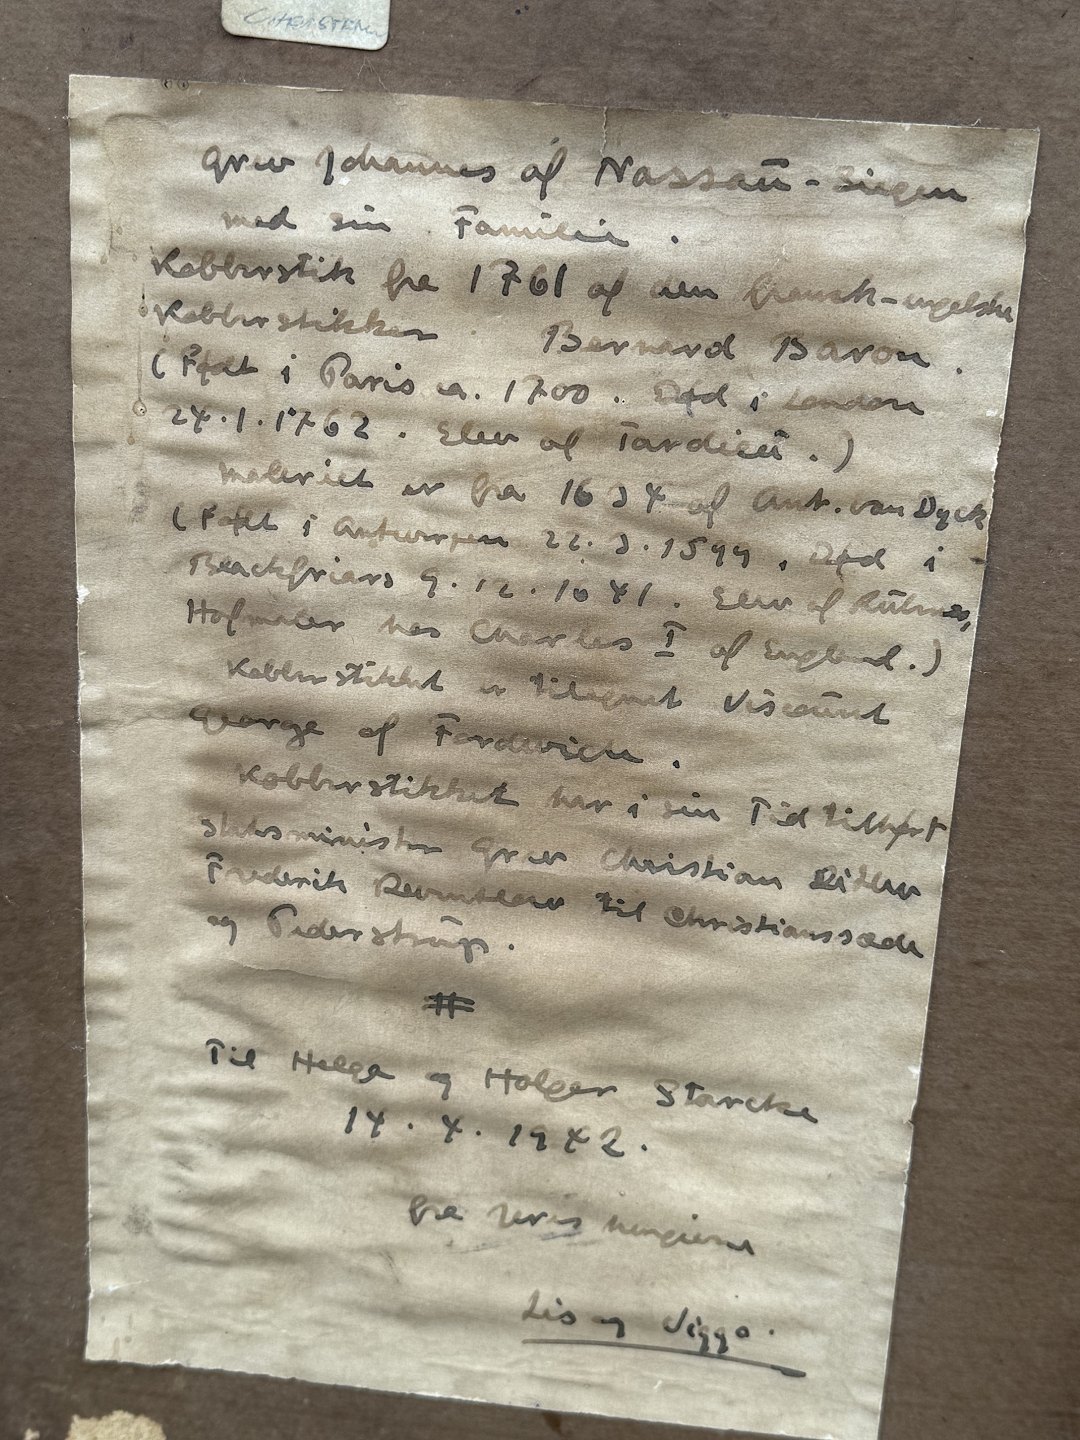 CHRISTEN
Grev Johannes af Nassau-Siegen
med sin Familie.
Kobberstik fra 1761 af den fransk-engelske
Kobberstikker Bernard Baron.
(Født i Paris ca. 1700. Død i London
24.1.1762. Elev af Tardieu.)
Maleriet er fra 1634 af Ant. van Dyck
(Født i Antwerpen 22.3.1599, Død i
Blackfriars 9.12.1641. Elev af Rubens,
Hofmaler hos Charles I af England.)
Kobberstikket er tilegnet Viscount
George of Fordwich.
Kobberstikket har i sin Tid tilhørt
Statsminister Grev Christian Ditlev
Frederik Reventlow til Christianssæde
og Pederstrup.
#
Til Helga og Holger Starcke
14.4.1942.
fra
Lis og Viggo.